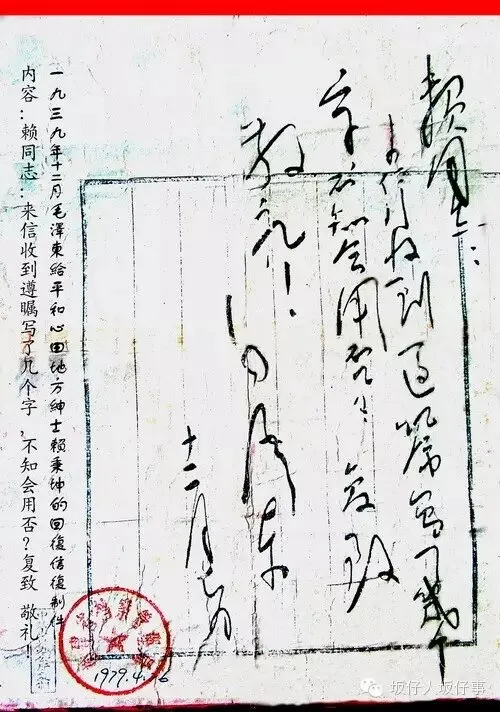 赖同志：
来信收到遵嘱写了幾个
字不知会用否？复致
敬礼！
毛泽东
十二月
一九三九年十二月毛澤東給平和心田地方紳士賴秉坤的回復信復制件
内容：赖同志：来信收到遵瞩写了几个字，不知会用否？复致 敬礼！
坂仔人坂仔事